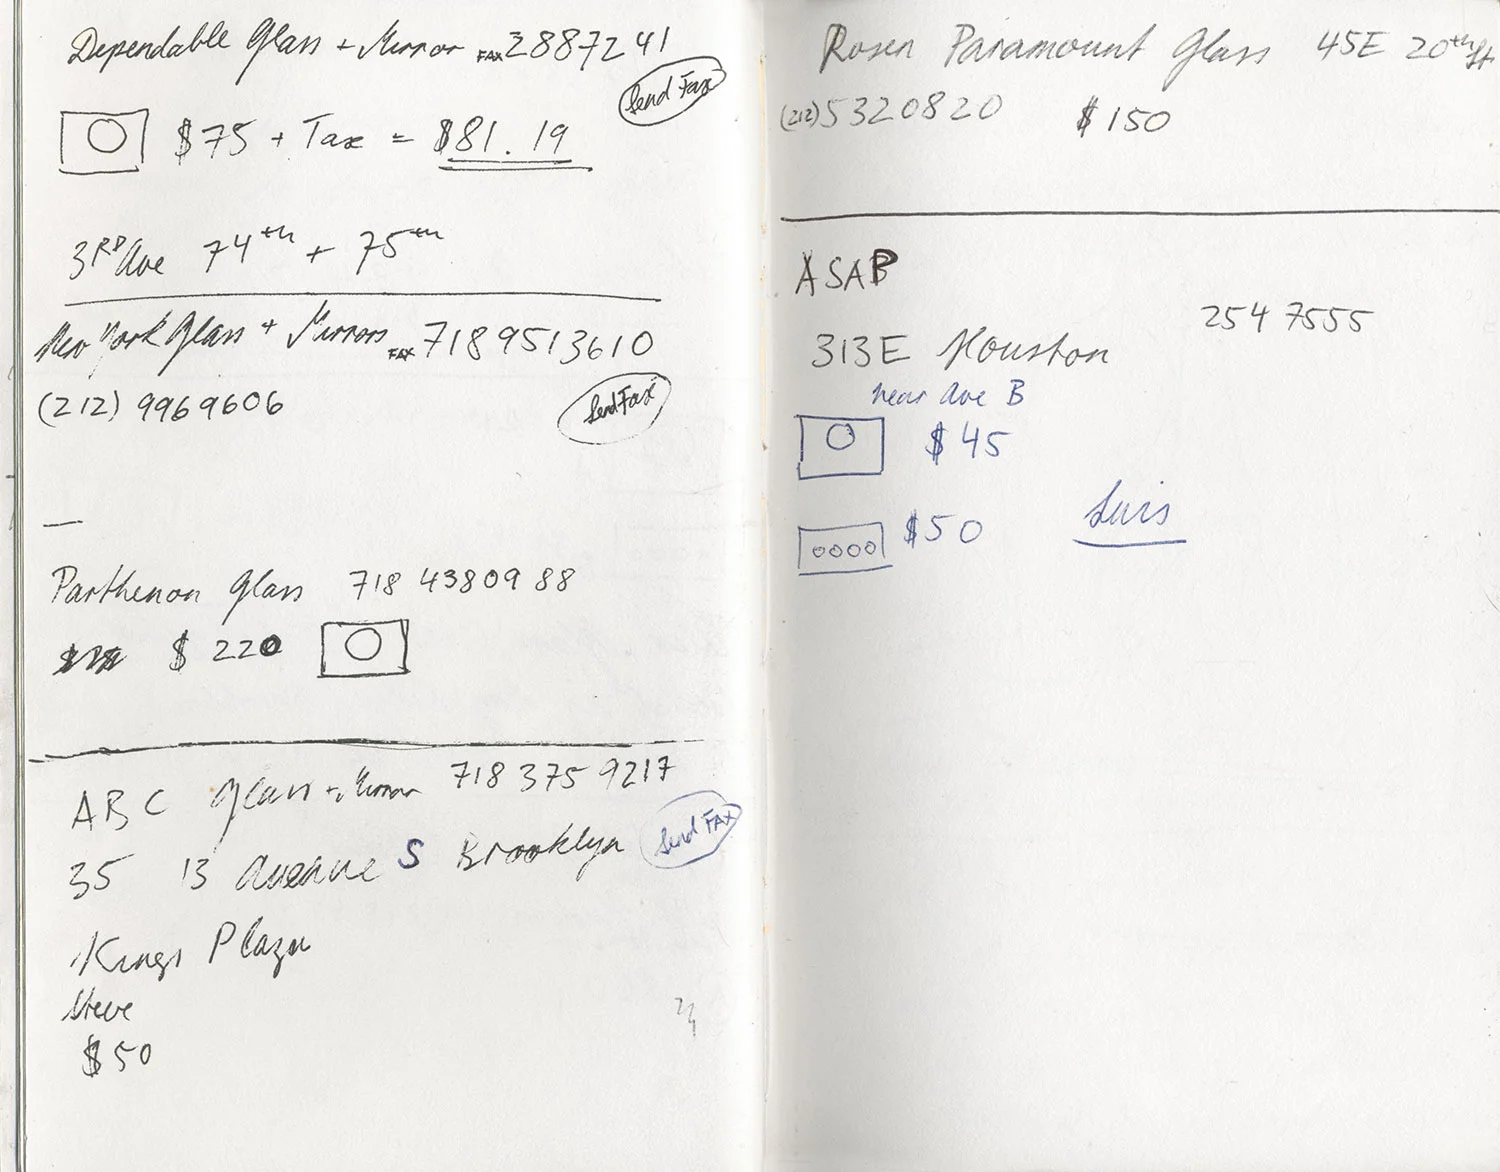 Dependable Glass + Mirror FAX 2887241
Send Fax
$75 + Tax = $81.19
3RD Ave 74th + 75th
New York Glass + Mirrors FAX 7189513610
(212) 9969606
Send Fax
Parthenon Glass 718 4380988
$220
ABC Glass + Mirror 718 375 9217
35 13 Avenue S Brooklyn
Send FAX
Kings Plaza
Steve
$50
Rosen Paramount Glass 45E 20th St
(212) 5320820 $150
ASAP
254 7555
313E Houston
near Ave B
$45
$50
Luis